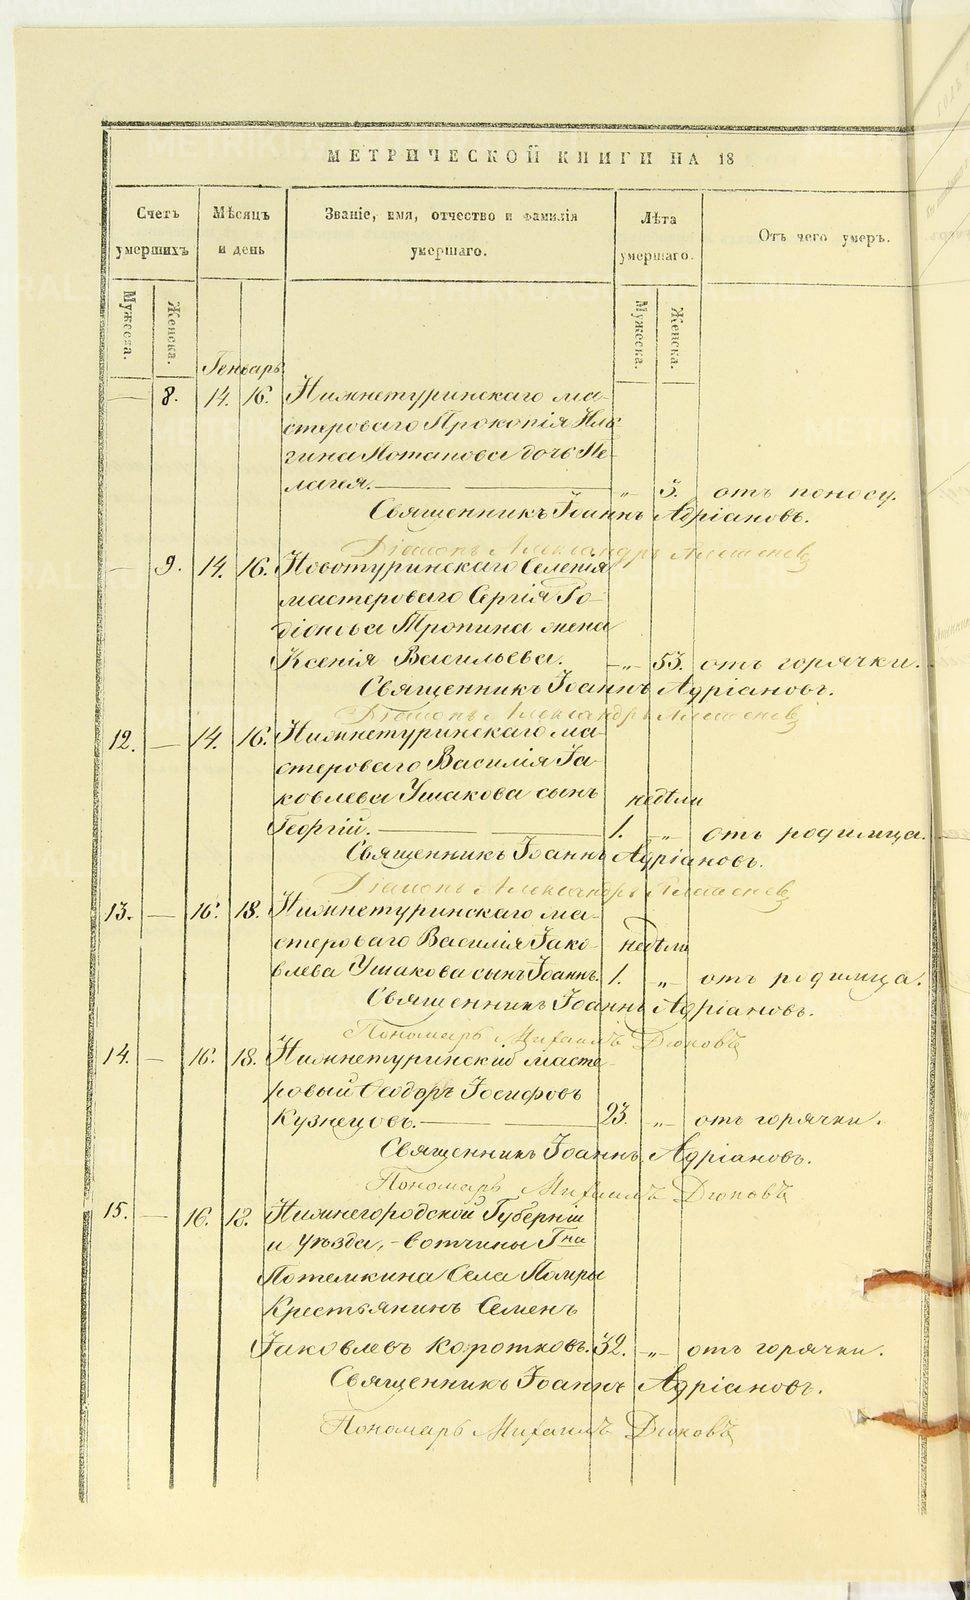 МЕТРИЧЕСКОЙ КНИГИ НА 18
Счетъ умершихъ
Мѣсяцъ и день
Званіе, имя, отчество и фамилія умершаго.
Лѣта умершаго.
Отъ чего умеръ.
Мужеска.
Женска.
Мужеска.
Женска.
Генварь
— 8. 14. 16. Нижнетуринскаго ма-
стероваго Прокопія Иль
гина Потапова дочь Пе-
лагея. — — „ 3. отъ поносу.
Священникъ Іоаннъ Адріановъ.
Діаконъ Александръ
— 9. 14. 16. Новотуринскаго Селенія
мастероваго Сергія Ро-
діонова Тропина жена
Ксенія Васильева. —„— 53. отъ горячки.
Священникъ Іоаннъ Адріановъ.
Діаконъ Александръ
12. — 14. 16. Нижнетуринскаго ма-
стероваго Василія Іа-
ковлева Ушакова сынъ недѣли
Георгій. — — 1. „ отъ родимца.
Священникъ Іоаннъ Адріановъ.
Діаконъ Александръ
13. — 16. 18. Нижнетуринскаго ма-
стероваго Василія Іако- недѣли
влева Ушакова сынъ Іоаннъ. 1. „ отъ родимца.
Священникъ Іоаннъ Адріановъ.
Пономарь Михаилъ Дюковъ
14. — 16. 18. Нижнетуринскій масте-
ровый Ѳеодоръ Іосифовъ
Кузнецовъ. — — 23. „ отъ горячки.
Священникъ Іоаннъ Адріановъ.
Пономарь Михаилъ Дюковъ
15. — 16. 18. Нижнегородской Губерніи
и уѣзда, – вотчины Гна
Потемкина Села
Крестьянинъ Семенъ
Іаковлевъ Коротковъ. 32. —„— отъ горячки.
Священникъ Іоаннъ Адріановъ.
Пономарь Михаилъ Дюковъ